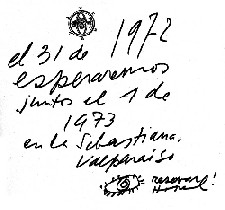 el 31 de 1972
esperaremos
juntos el 1 de
1973
en la Sebastiana.
Valparaiso
reservar!